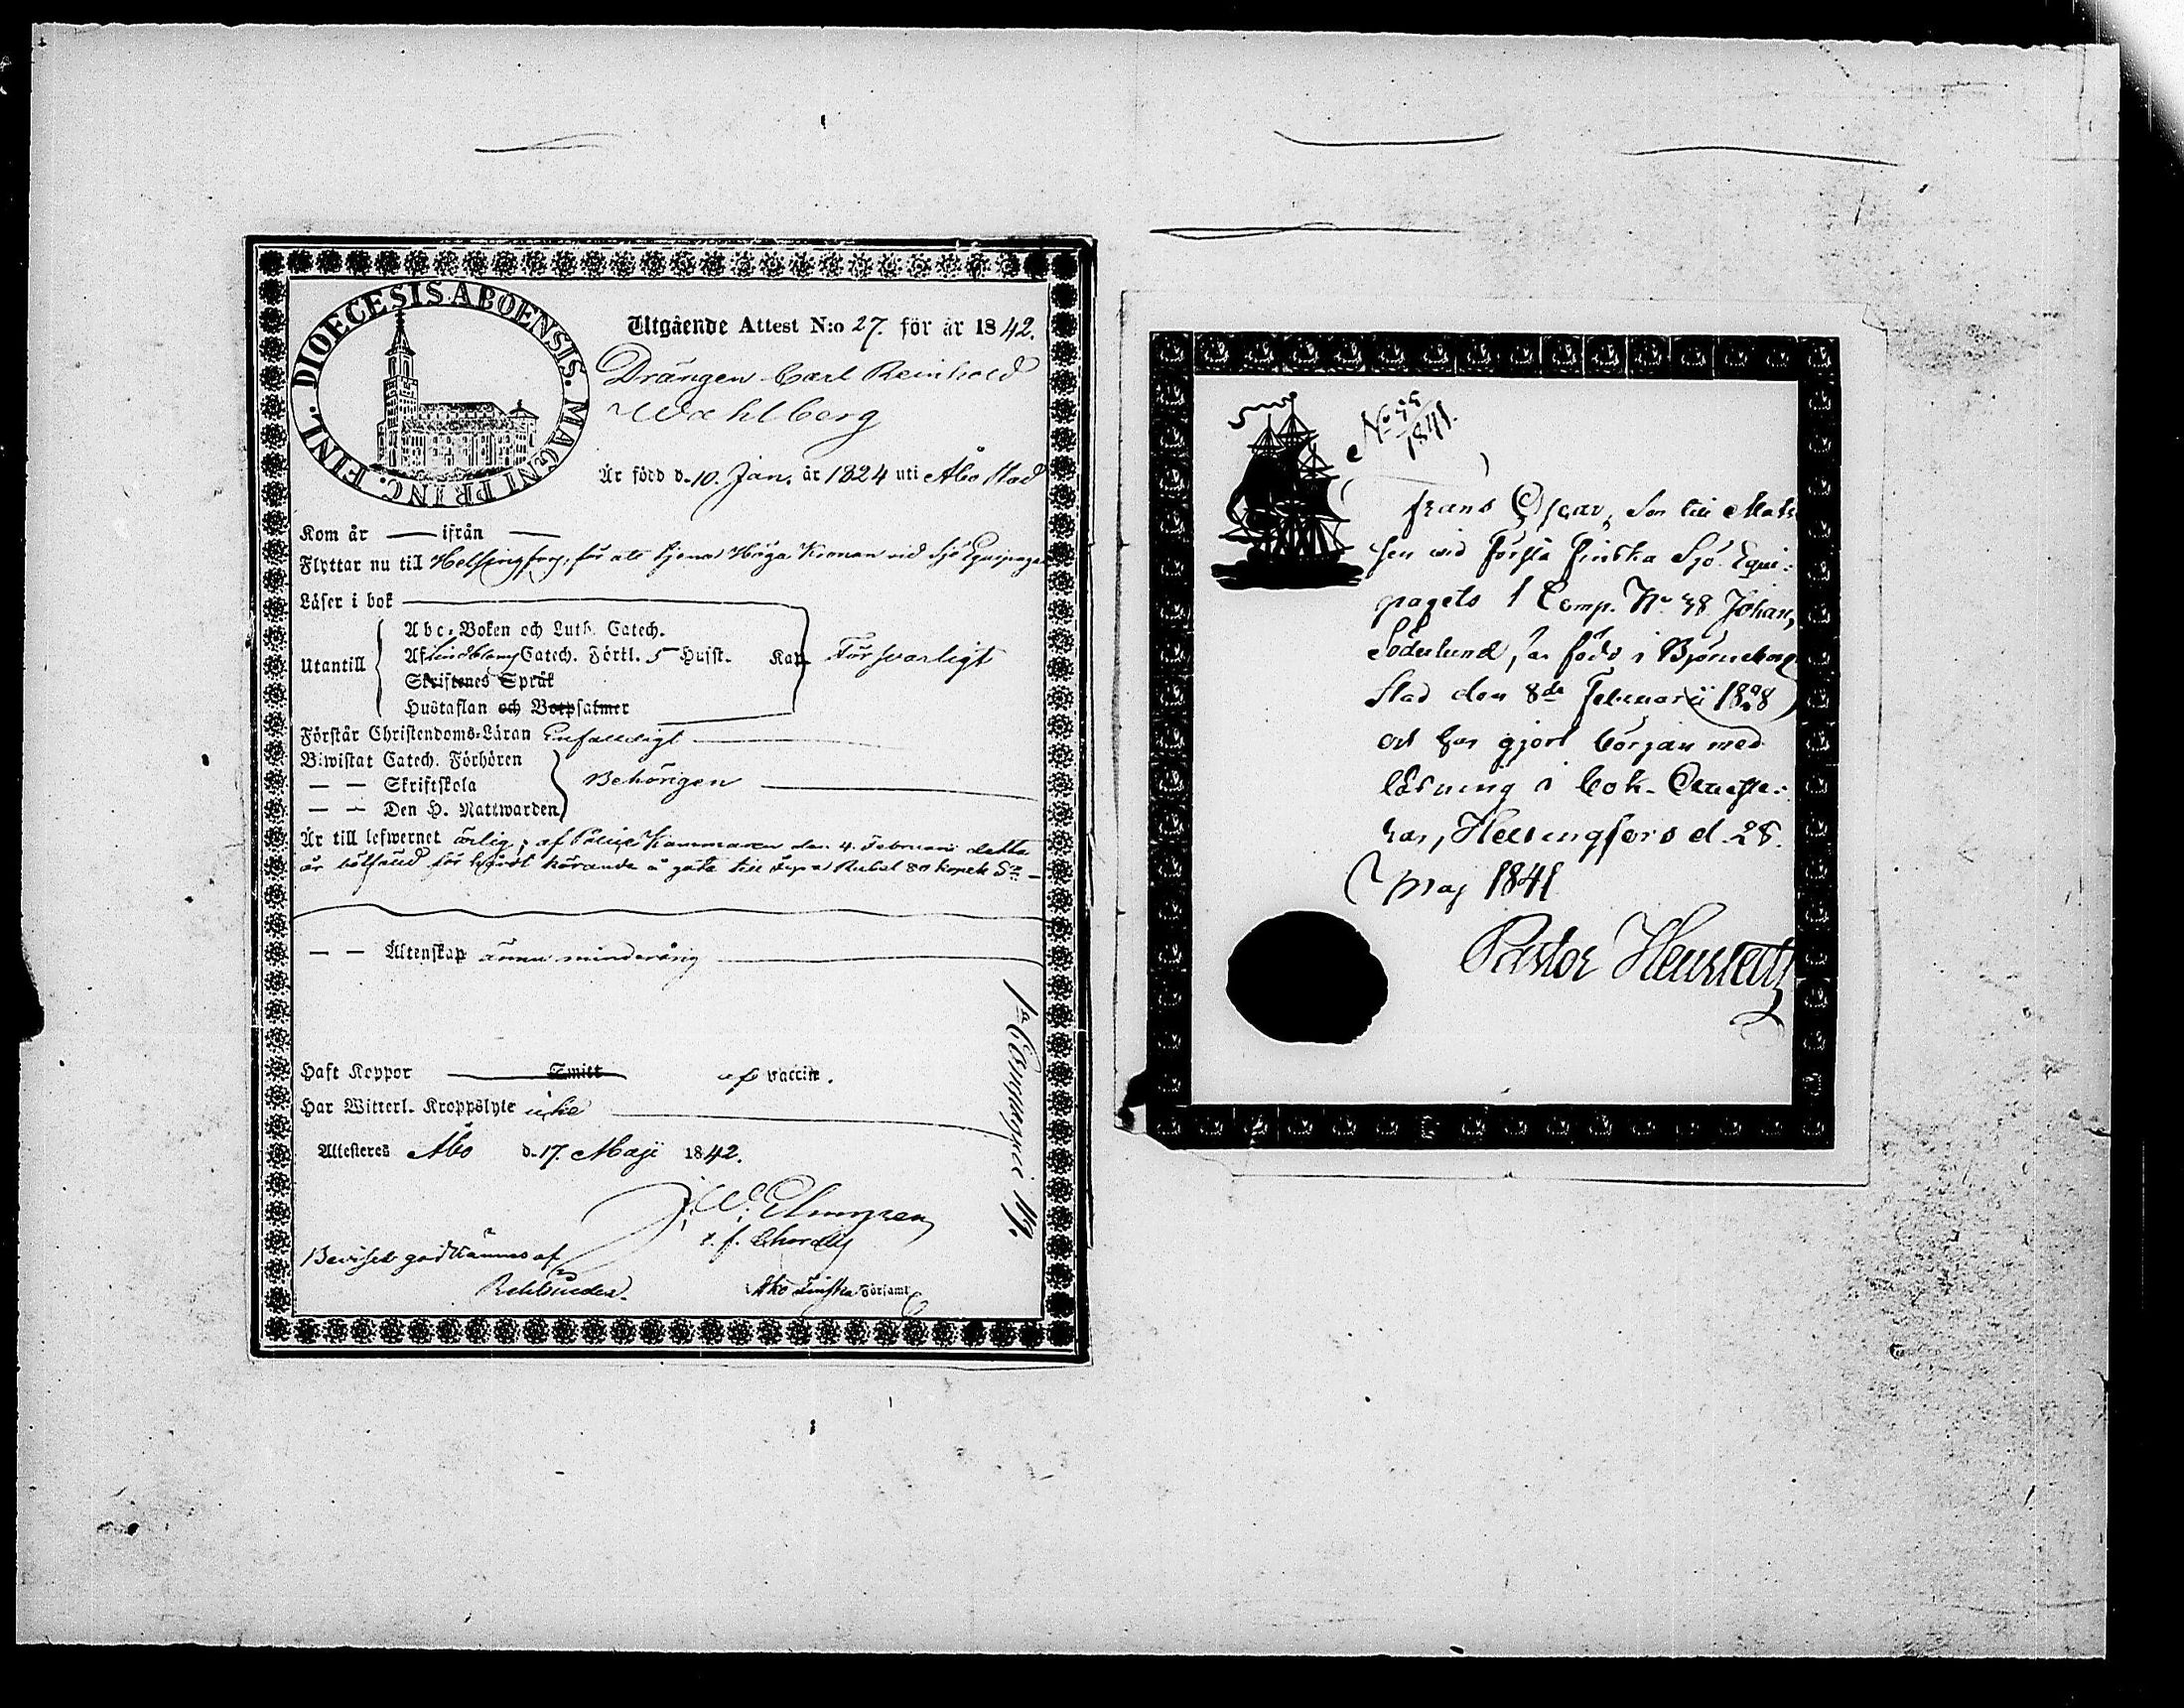 DIOECESIS ABOENSIS. MAGNI PRINC. FINL.
Utgående Attest N:o 27. för år 1842.
Drängen Carl Reinhold
Wahlberg
Är född d. 10. Jan. år 1824 uti Åbo Stad
Kom år — ifrån —
Flyttar nu till Helsingfors, för att tjena Höga Kronan vid Sjö Equipaget
Läser i bok
Utantill
Abc-Boken och Luth. Catech.
Af Lindbloms Catech. Förkl. 5 Hufst. Kap. Försvarligt
Skriftenes Språk
Hustaflan och Botpsalmer
Förstår Christendoms-Läran Enfaldigt
Biwistat Catech. Förhören
— — Skriftskola Behörigen
— — Den H. Nattwarden
Är till lefwernet ärlig; af Police Kammaren den 4. Februari detta
år för å gata till Rubel 80 kopek
— — Äktenskap ännu minderårig
Haft Koppor Smitt af vaccin.
Har Witterl. Kroppslyte icke
Attesteras Åbo d. 17. Maji 1842.
J. W. Elmgren
Beviset godkännes af
Rehbinder.
Åbo Finska Församl.
1a Compagnie
1841.
Frans Oscar, Son till Matro
sen wid Första Finska Sjö Equi-
pagets 1 Comp. No 38 Johan
Söderlund, är född i Björneborgs
Stad den 8de Februarii
och har gjort början med
läsning i bok.
Helsingfors d. 28.
Maj 1841
Pastor